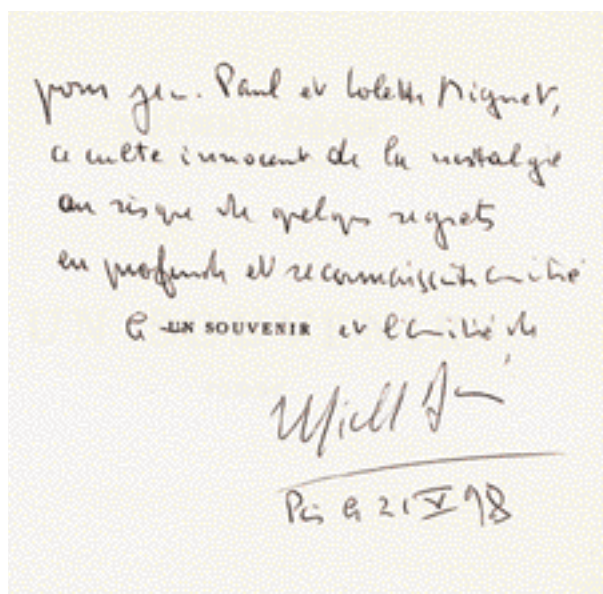 pour Jean-Paul et Colette Mignet,
ce culte innocent de la nostalgie
au risque de quelques regrets
en profonde et reconnaissante amitié
le UN SOUVENIR et l'amitié de
Michel
Paris le 21 V 98